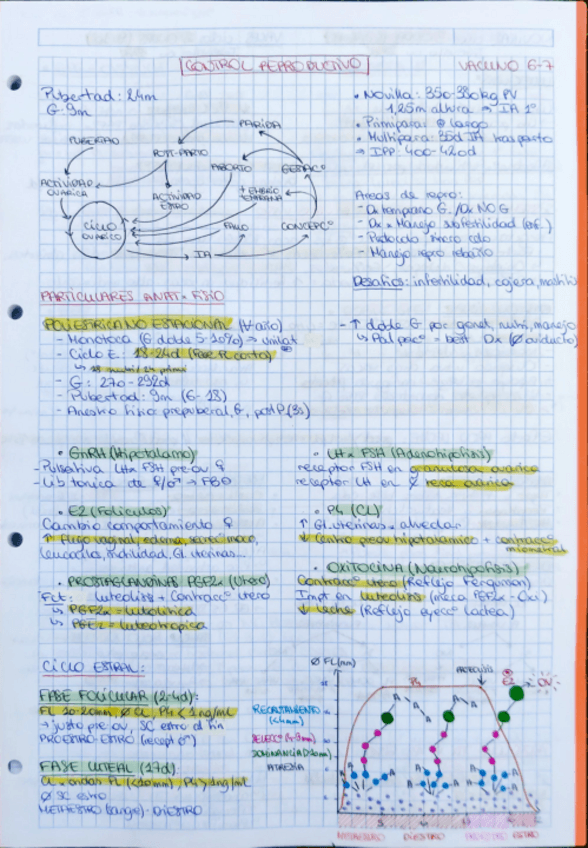 CONTROL REPRODUCTIVO
VACUNO 6-7
Pubertad: 24m
G-9m
PUBERTAD
ACTIVIDAD OVARICA
CICLO OVARICO
POST-PARTO
ACTIVIDAD ESTRO
PARIDA
ABORTO
GESTAC°
+ EMBRIO
FALLO
CONCEPC°
IA
• Novilla: 350-380kg PV
1,25m altura ⇒ IA 1°
• Primipara: largo
• Multipara: 35d IA tras parto
⇒ IPP: 400-420d
Areas de repro:
- Dx temprano G. / Dx NO G
- Dx + Manejo subfertilidad
- Protocolo sincro celo
- Manejo repro rebaño
Desafios: infertilidad, cojera,
PARTICULARES ANAT + FISIO
POLIESTRICA NO ESTACIONAL (∀ año)
- Monotoca (G doble 5-10%) ⇒ unilat
- Ciclo E: 18-24d (Fase FL corta)
- G: 270-292d
- Pubertad: 9m (6-18)
- Anestro fisio: prepuberal, G, postP (3s)
- ↑ doble G por genet, nutri, manejo
↳ Palpac° = best Dx (Ø oviducto)
• GnRH (Hipotalamo)
- Pulsativa LH + FSH pre-ov ♀
- Lib tonica de ♀/♂ → FB⊖
• LH + FSH (Adenohipofisis)
receptor FSH en granulosa ovarica
receptor LH en teca ovarica
• E2 (Foliculos)
Cambio comportamiento ♀
↑ Flujo vaginal, edema, secrec° moco,
leucocitos, motilidad, Gl. uterinas...
• P4 (CL)
↑ Gl. uterinas + alveolar
↓ Centro preov hipotalamico + contracc° miometrial
• PROSTAGLANDINAS PGF2α (Utero)
Fct: luteolisis + Contracc° utero
↳ PGF2α = luteolitica
↳ PGE2 = luteotropica
• OXITOCINA (Neurohipofisis)
Contracc° utero (Reflejo Ferguson)
Impt en luteolisis (meca PGF2α - Oxi)
↓ leche (Reflejo eyecc° lactea)
CICLO ESTRAL:
FASE FOLICULAR (2-4d):
FL 10-20mm, Ø CL, P4 < 1ng/ml
→ justo pre ov, SC estro al fin
PROESTRO-ESTRO (recept ♂)
FASE LUTEAL (17d)
CL + ondas FL (<10mm), P4 > 1ng/ml
Ø SC estro
METAESTRO (sangre) - DIESTRO
Ø FL (mm)
P4
E2
OV
RECLUTAMIENTO (<4mm)
SELECC°
DOMINANCIA (>10mm)
ATRESIA
METAESTRO DIESTRO PROESTRO ESTRO